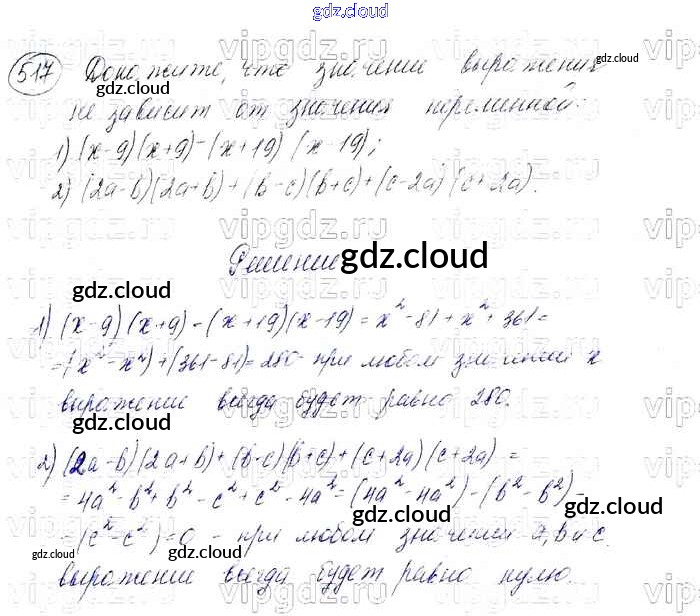 gdz.cloud
517 Докажите, что значение выражения
gdz.cloud
не зависит от значения переменной:
1) (x-9)(x+9)-(x+19)(x-19);
2) (2a-b)(2a+b)+(b-c)(b+c)+(c-2a)(c+2a).
Решение
gdz.cloud
gdz.cloud
1) (x-9)(x+9)-(x+19)(x-19)=x²-81+x²+361=
=(x²-x²)+(361-81)=280- при любом значении x
gdz.cloud
выражение всегда будет равно 280.
gdz.cloud
2) (2a-b)(2a+b)+(b-c)(b+c)+(c+2a)(c+2a)=
=4a²-b²+b²-c²+c²-4a²=(4a²-4a²)-(b²-b²)-
gdz.cloud
-(c²-c²)=0 - при любом значении a, b и c
gdz.cloud
gdz.cloud
gdz.cloud
выражение всегда будет равно нулю.